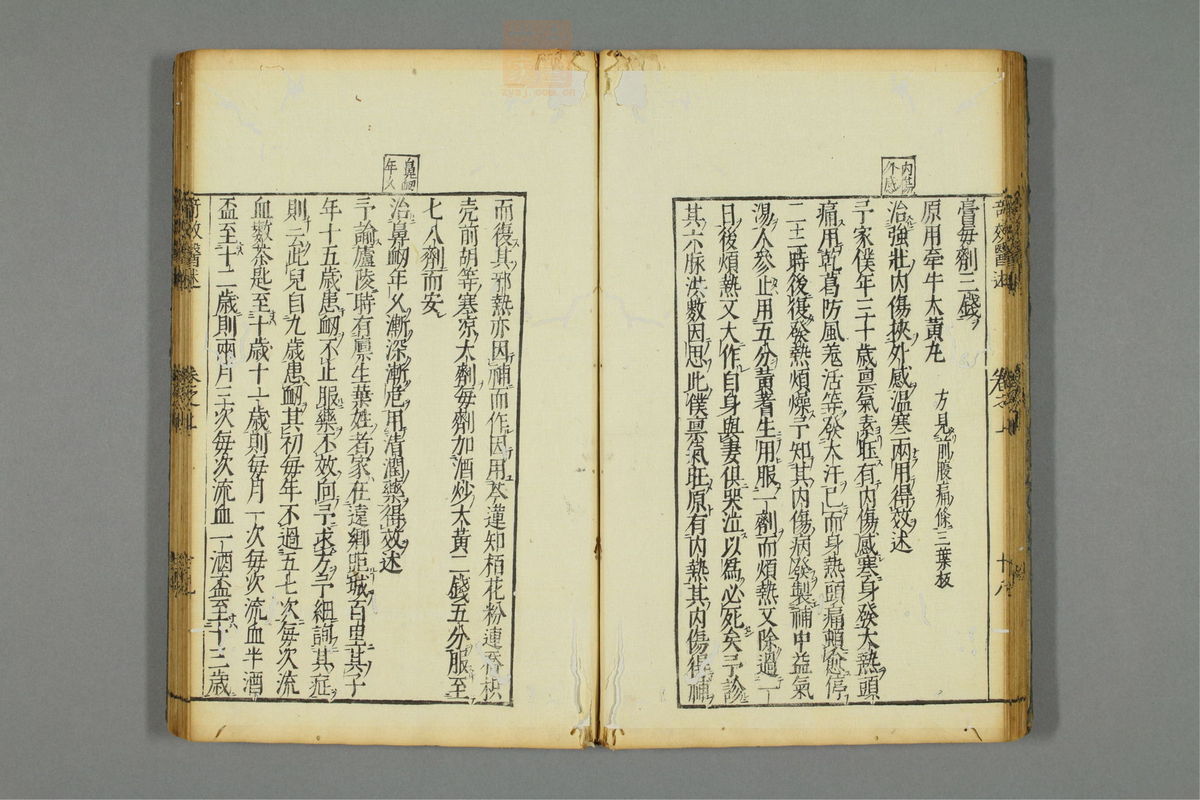 內傷
外感
膏每劑三錢
原用牽牛大黃丸 方見前腹痛條三葉板
治強壯內傷挾外感溫寒兩用得效述
予家僕年三十歲稟氣素旺有內傷感寒身發大熱頭
痛用乾葛防風羗活等發大汗已而身熱頭痛頓愈停
二三時後復發熱煩燥予知其內傷病發製補中益氣
湯人參止用五分黃蓍生用服一劑而煩熱又除過一
日後煩熱又大作自身與妻俱哭泣以為必死矣予診
其六脉洪數因思此僕稟氣旺原有內熱其內傷得補
竒效醫述 卷之上 十八
鼻衂
年久
而復其邪熱亦因補而作因用芩連知栢花粉連翹枳
壳前胡等寒凉大劑每劑加酒炒大黃二錢五分服至
七八劑而安
治鼻衂年久漸深漸危用清潤藥得效述
予諭廬陵時有稟生葉姓者家在遠鄉距城百里其子
年十五歲患衂不止服藥不效向予求方予細詢其症
則云此兒自九歲患衂其初每年不過五七次每次流
血數茶匙至十歲十一歲則每月一次每次流血半酒
盃至十二歲則兩月三次每次流血一酒盃至十三歲
竒效醫述 卷之上